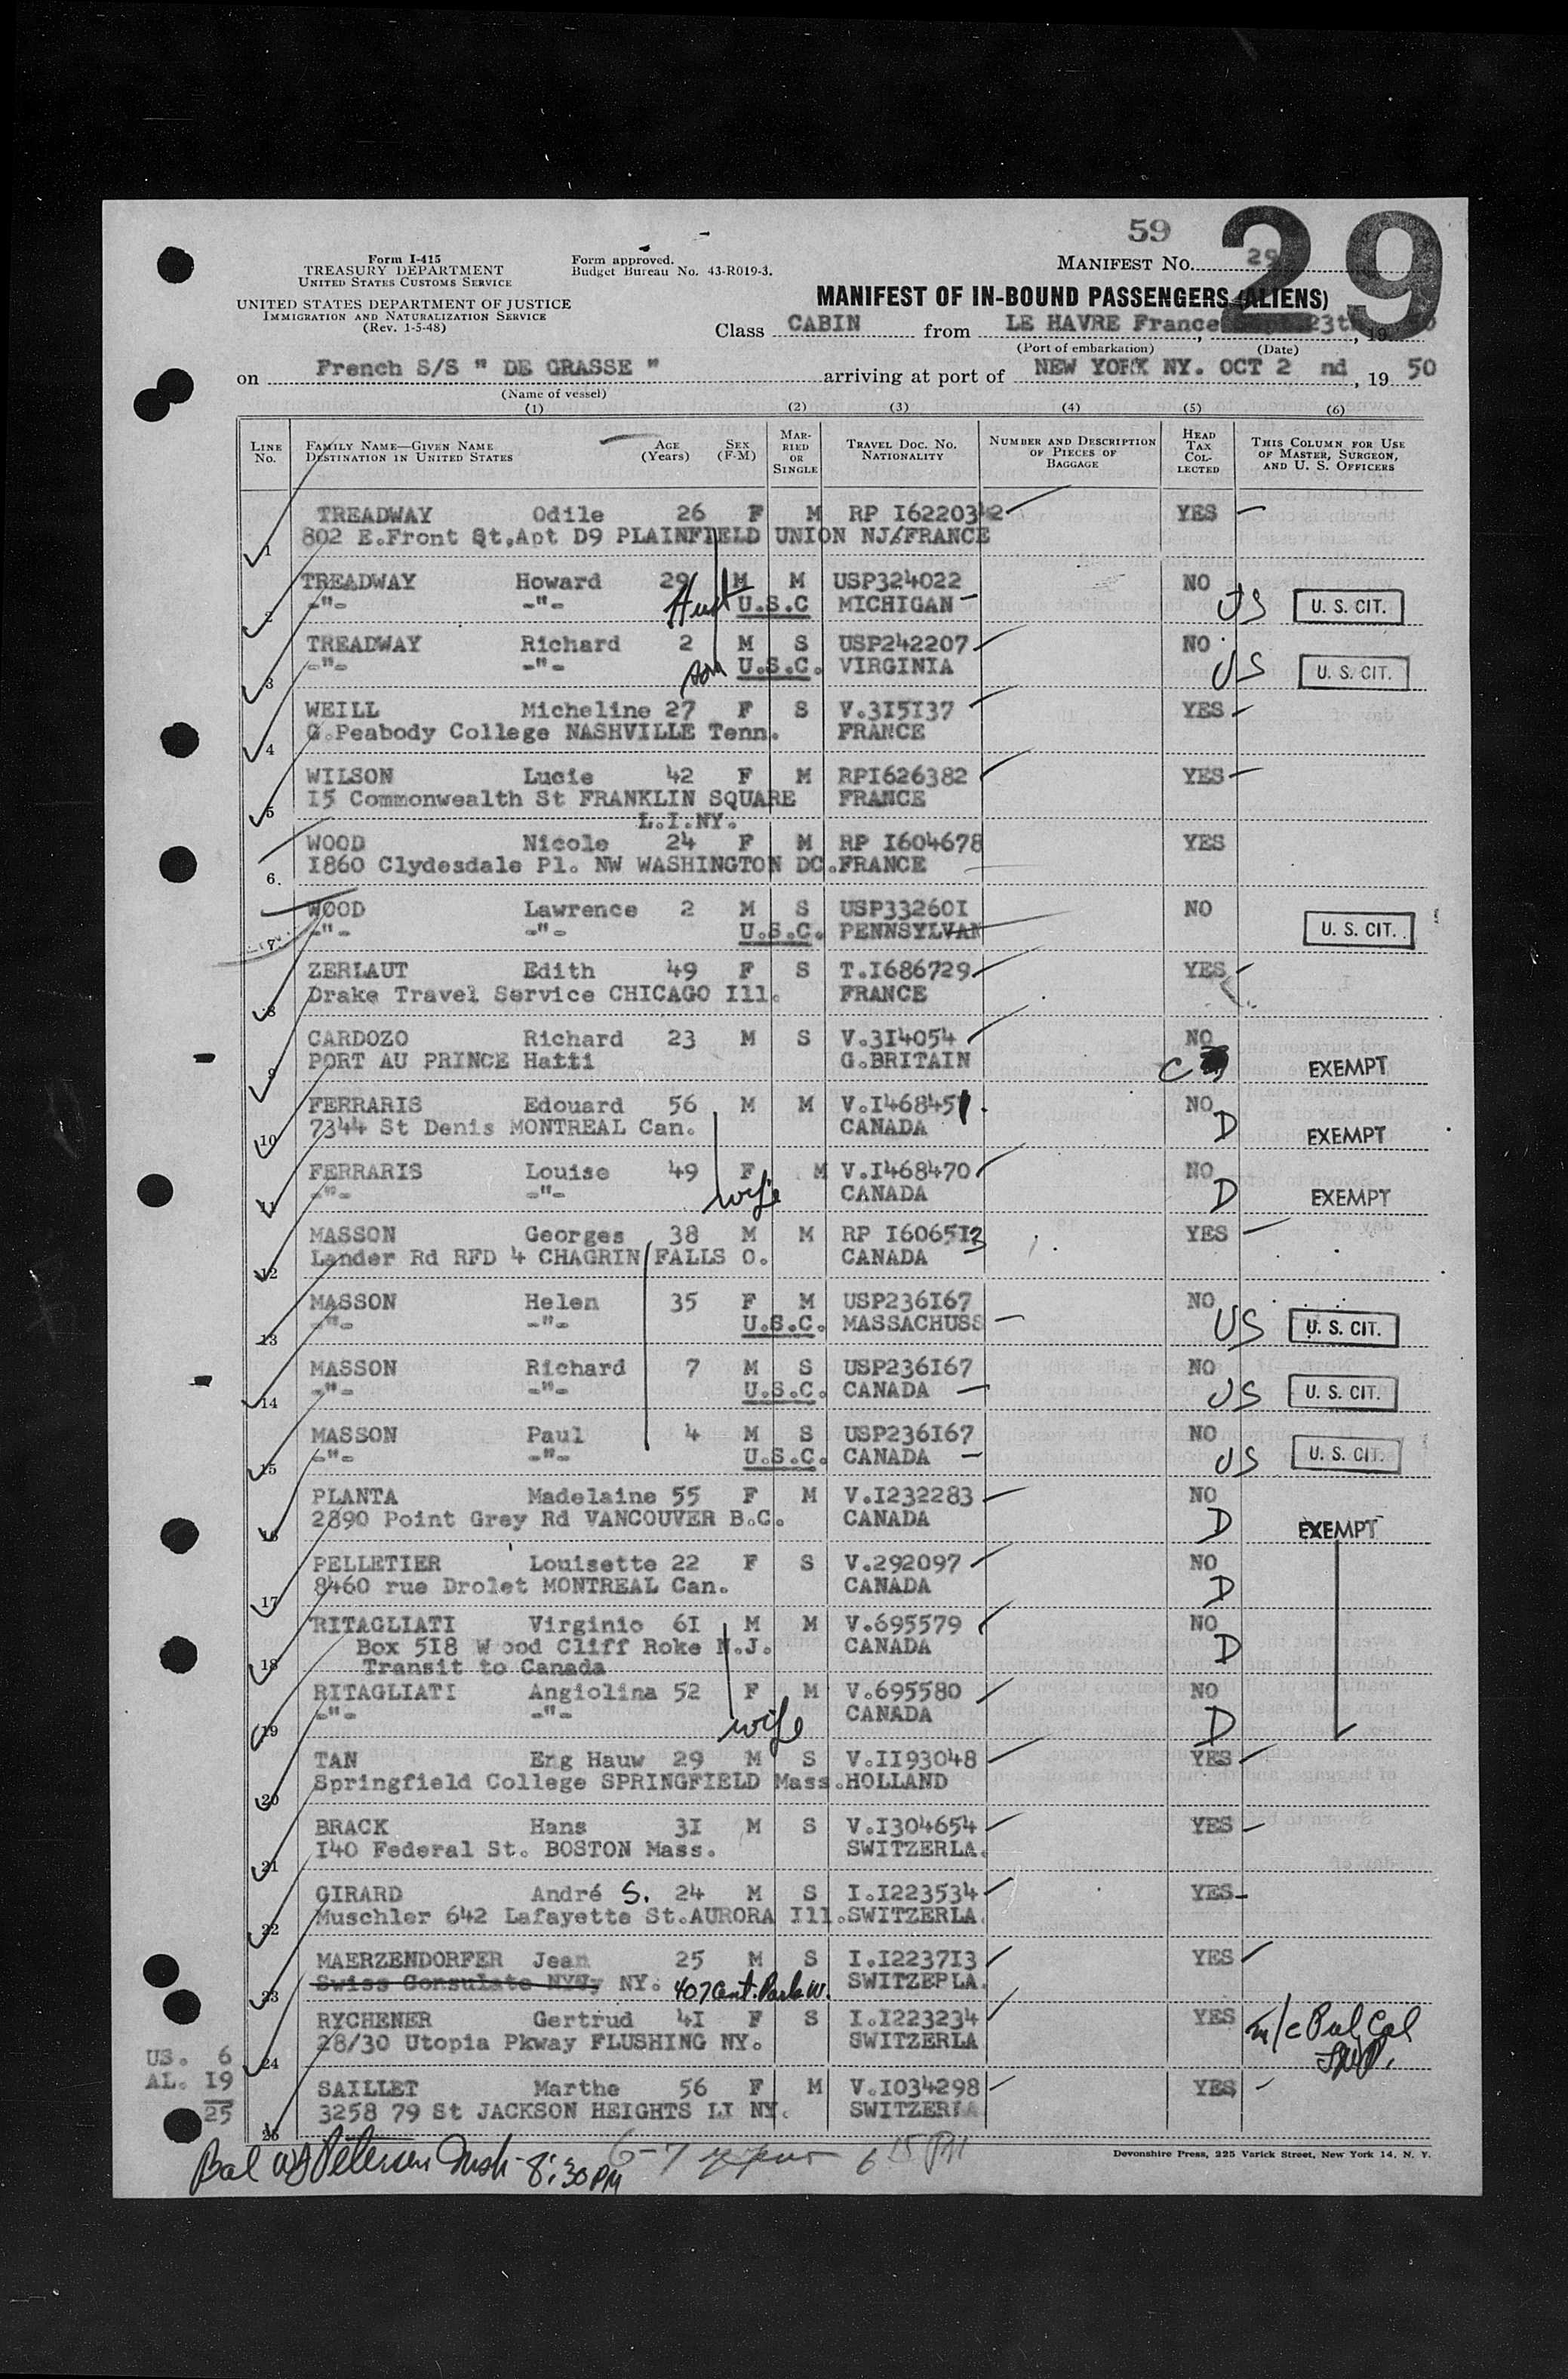 59
29
Form I-415
TREASURY DEPARTMENT
UNITED STATES CUSTOMS SERVICE
UNITED STATES DEPARTMENT OF JUSTICE
IMMIGRATION AND NATURALIZATION SERVICE
(Rev. 1-5-48)
Form approved.
Budget Bureau No. 43-R019-3.
MANIFEST NO. 29
MANIFEST OF IN-BOUND PASSENGERS (ALIENS)
Class CABIN from LE HAVRE France, 23th, 19
(Port of embarkation) (Date)
on French S/S " DE GRASSE " arriving at port of NEW YORK NY. OCT 2 nd, 19 50
(Name of vessel)
(1) (2) (3) (4) (5) (6)
LINE No. FAMILY NAME—GIVEN NAME DESTINATION IN UNITED STATES AGE (Years) SEX (F-M) MARRIED OR SINGLE TRAVEL DOC. NO. NATIONALITY NUMBER AND DESCRIPTION OF PIECES OF BAGGAGE HEAD TAX COLLECTED THIS COLUMN FOR USE OF MASTER, SURGEON, AND U. S. OFFICERS
TREADWAY Odile 26 F M RP I6220342 YES
1 802 E.Front St.Apt D9 PLAINFIELD UNION NJ/FRANCE
TREADWAY Howard 29 M M USP324022 NO
2 -"- -"- U.S.C MICHIGAN US U. S. CIT.
TREADWAY Richard 2 M S USP242207 NO
3 -"- -"- son U.S.C. VIRGINIA US U. S. CIT.
WEILL Micheline 27 F S V.3I5I37 YES
4 G.Peabody College NASHVILLE Tenn. FRANCE
WILSON Lucie 42 F M RPI626382 YES
5 I5 Commonwealth St FRANKLIN SQUARE FRANCE
L.I.NY.
WOOD Nicole 24 F M RP I604678 YES
6. I860 Clydesdale Pl. NW WASHINGTON DC.FRANCE
WOOD Lawrence 2 M S USP33260I NO
7 -"- -"- U.S.C. PENNSYLVAN U. S. CIT.
ZERLAUT Edith 49 F S T.I686729 YES
8 Drake Travel Service CHICAGO Ill. FRANCE
CARDOZO Richard 23 M S V.3I4054 NO
9 PORT AU PRINCE Hatti G.BRITAIN C EXEMPT
FERRARIS Edouard 56 M M V.I468451 NO
10 7344 St Denis MONTREAL Can. CANADA D EXEMPT
FERRARIS Louise 49 F M V.I468470 NO
11 -"- -"- wife CANADA D EXEMPT
MASSON Georges 38 M M RP I6065I3 YES
12 Lander Rd RFD 4 CHAGRIN FALLS O. CANADA
MASSON Helen 35 F M USP236I67 NO
13 -"- -"- U.S.C. MASSACHUSS US U. S. CIT.
MASSON Richard 7 M S USP236I67 NO
14 -"- -"- U.S.C. CANADA US U. S. CIT.
MASSON Paul 4 M S USP236I67 NO
15 -"- -"- U.S.C. CANADA US U. S. CIT.
PLANTA Madelaine 55 F M V.I232283 NO
16 2890 Point Grey Rd VANCOUVER B.C. CANADA D EXEMPT
PELLETIER Louisette 22 F S V.292097 NO
17 8460 rue Drolet MONTREAL Can. CANADA D
RITAGLIATI Virginio 6I M M V.695579 NO
Box 5I8 W ood Cliff Roke N.J. CANADA D
18 Transit to Canada
RITAGLIATI Angiolina 52 F M V.695580 NO
19 -"- -"- wife CANADA D
TAN Eng Hauw 29 M S V.II93048 YES
20 Springfield College SPRINGFIELD Mass.HOLLAND
BRACK Hans 3I M S V.I304654 YES
21 I40 Federal St. BOSTON Mass. SWITZERLA.
GIRARD André S. 24 M S I.I223534 YES
22 Muschler 642 Lafayette St.AURORA Ill.SWITZERLA.
MAERZENDORFER Jean 25 M S I.I2237I3 YES
23 Swiss Consulate NY. 407 Cent. Park W. SWITZEPLA.
RYCHENER Gertrud 4I F S I.I223234 YES
24 28/30 Utopia Pkway FLUSHING NY. SWITZERLA
US. 6
AL. I9
25
SAILLET Marthe 56 F M V.I034298 YES
25 3258 79 St JACKSON HEIGHTS LI NY. SWITZERLA
Bal Petersen 8:30PM 6-7 6 15 PM
Devonshire Press, 225 Varick Street, New York 14, N. Y.